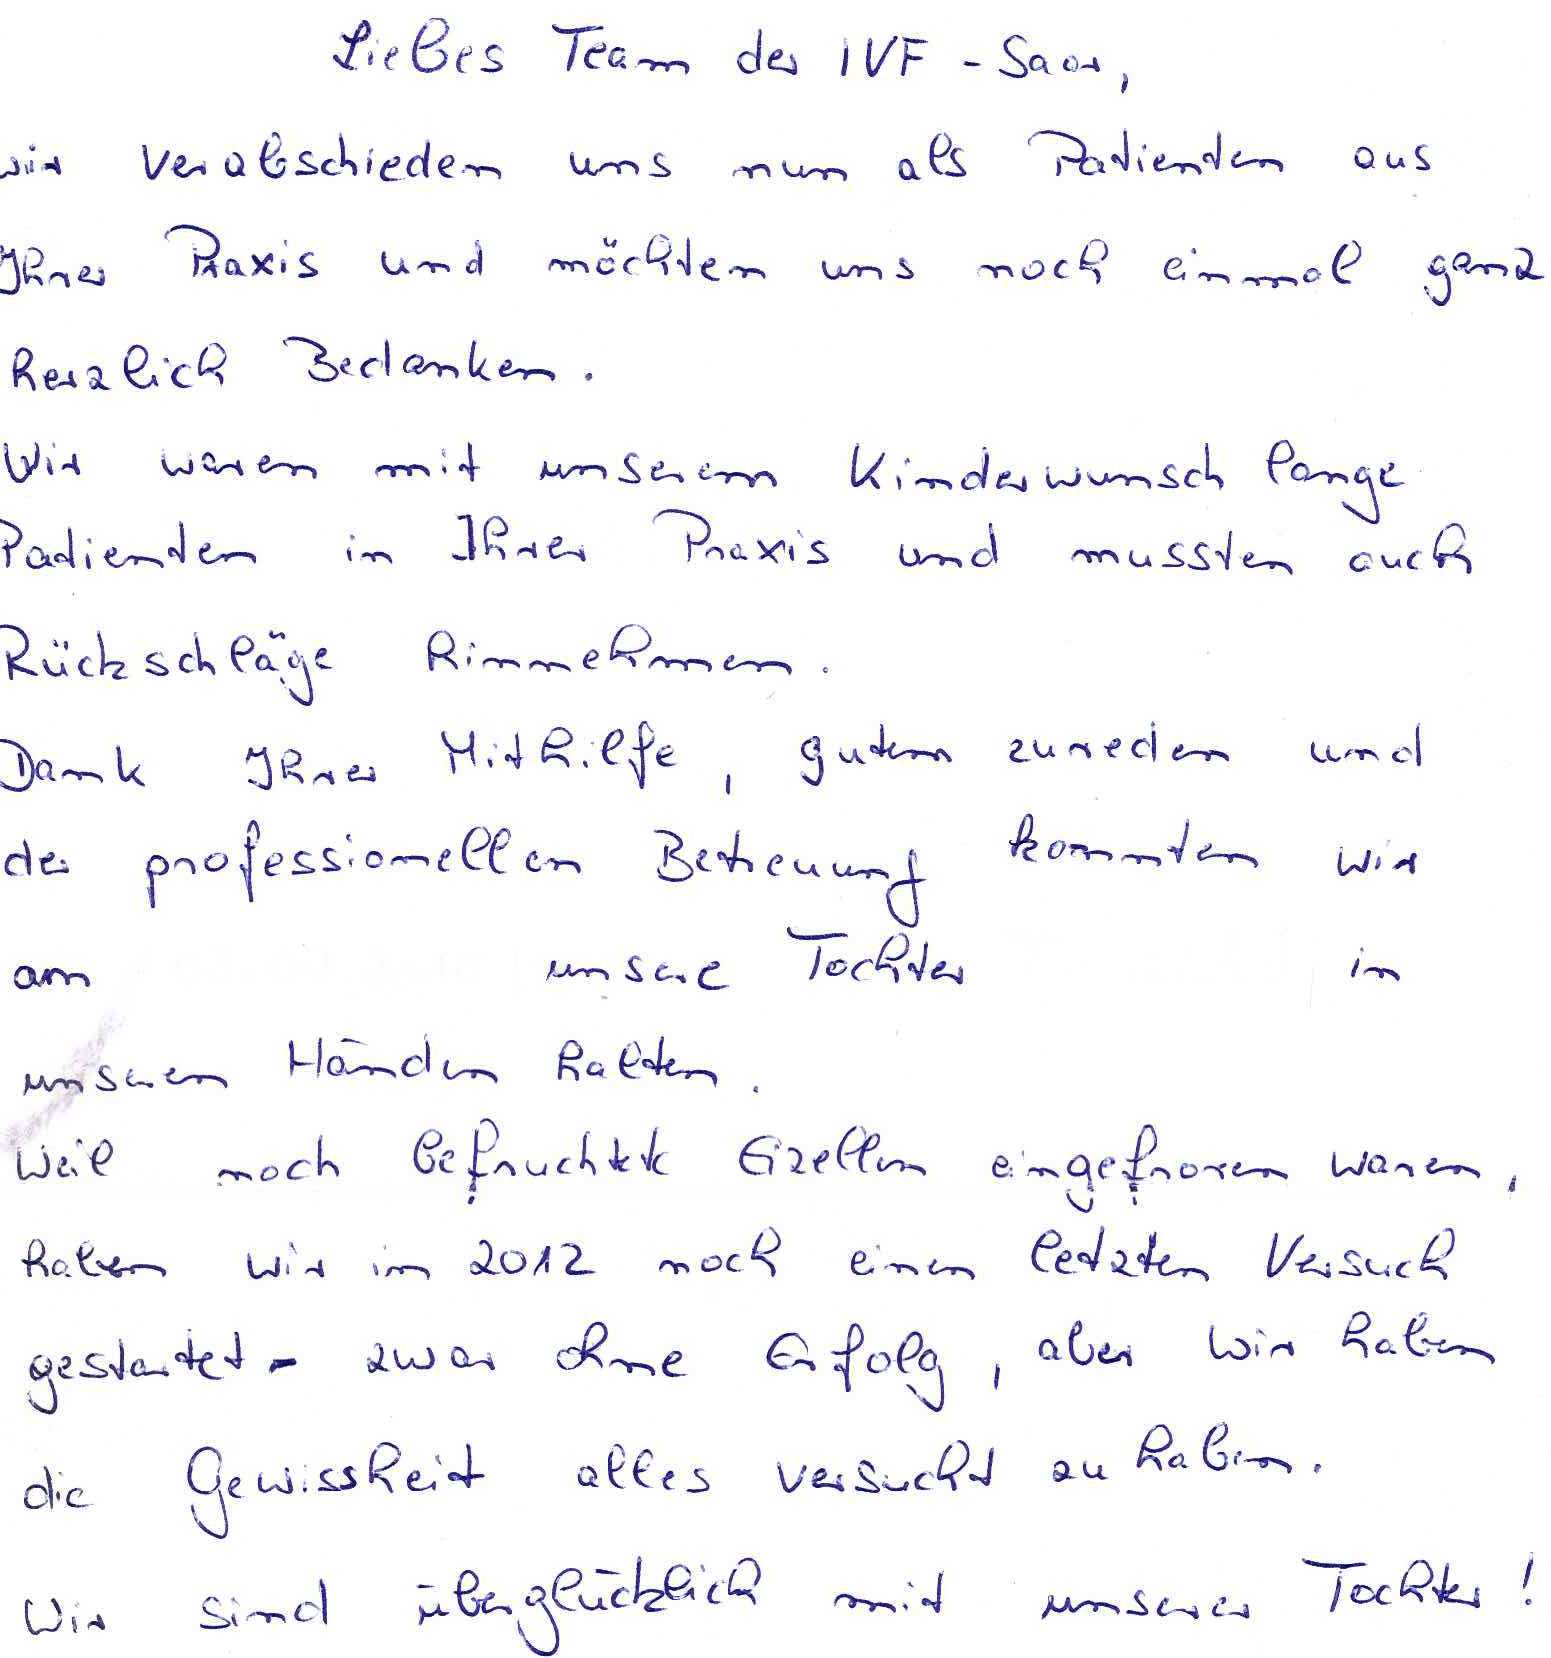 Liebes Team der IVF - Saar,
wir verabschieden uns nun als Patienten aus
Ihrer Praxis und möchten uns noch einmal ganz
herzlich Bedanken.
Wir waren mit unserem Kinderwunsch lange
Patienten in Ihrer Praxis und mussten auch
Rückschläge hinnehmen.
Dank Ihrer Mithilfe, gutem zureden und
der professionellen Betreuung konnten wir
am unsere Tochter in
unseren Händen halten.
Weil noch befruchtete Eizellen eingefroren waren,
haben wir in 2012 noch einen letzten Versuch
gestartet - zwar ohne Erfolg, aber wir haben
die Gewissheit alles versucht zu haben.
Wir sind überglücklich mit unserer Tochter!